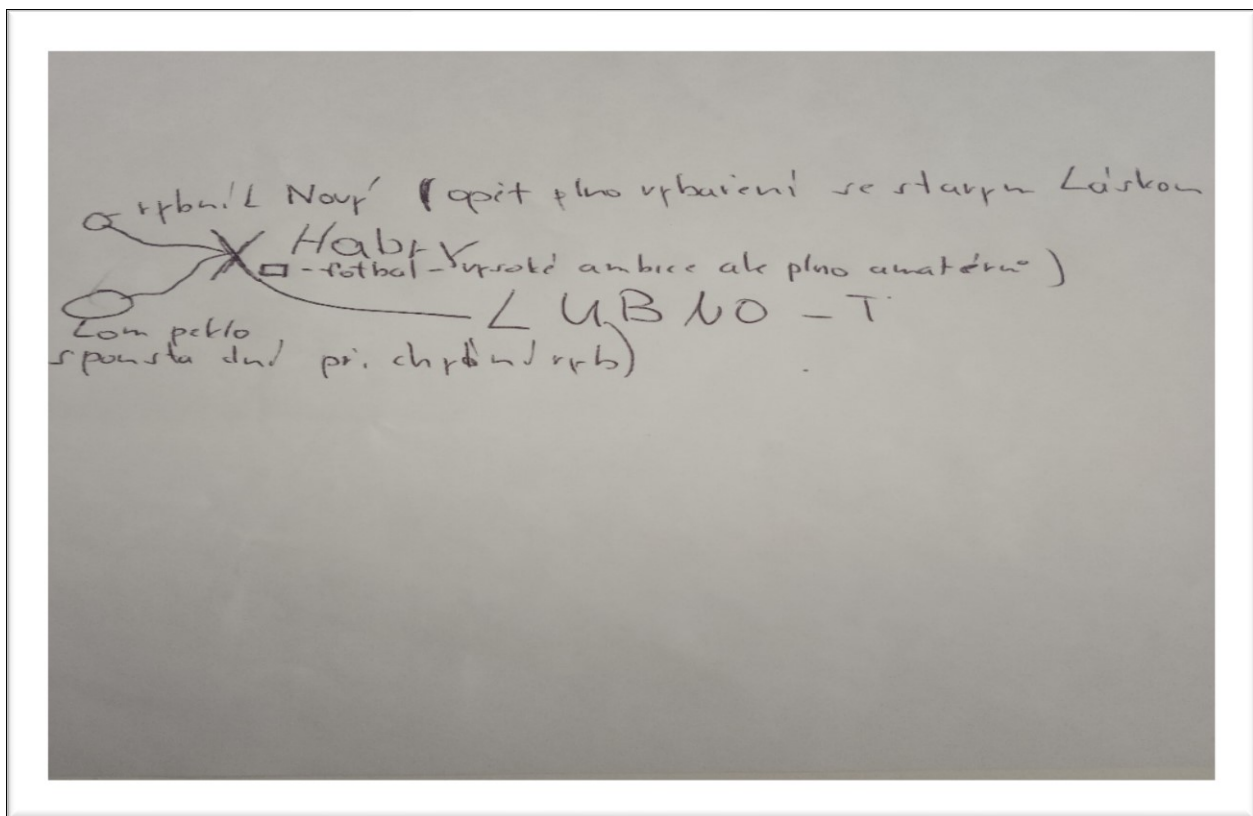 rybník Nový (opět plno rybaření se starym Láskou
Habry
- fotbal - vysoké ambice ale plno amatérů)
LUBNO - T
Lom peklo
spousta dní při chytání ryb)